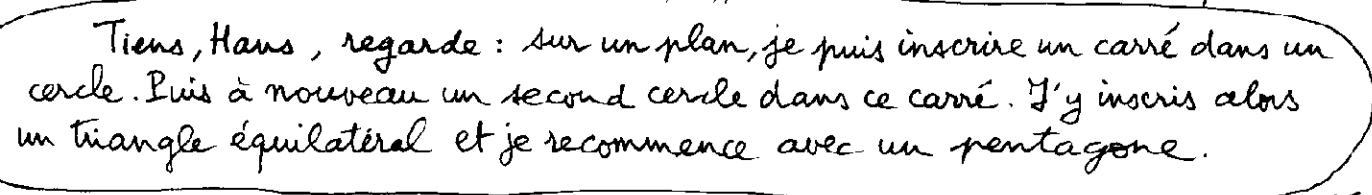 Tiens, Hans, regarde : sur un plan, je puis inscrire un carré dans un
cercle. Puis à nouveau un second cercle dans ce carré. J'y inscris alors
un triangle équilatéral et je recommence avec un pentagone.